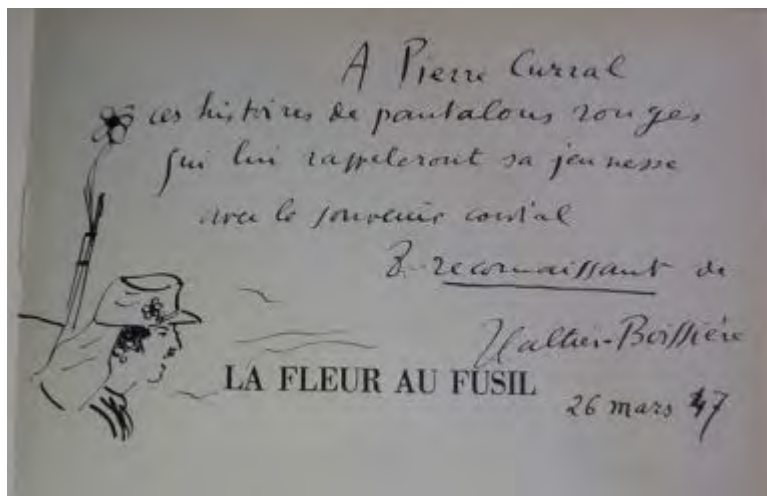 A Pierre Curral
ces histoires de pantalons rouges
qui lui rappeleront sa jeunesse
avec le souvenir cordial
& reconnaissant de
Galtier-Boissière
LA FLEUR AU FUSIL
26 mars 47